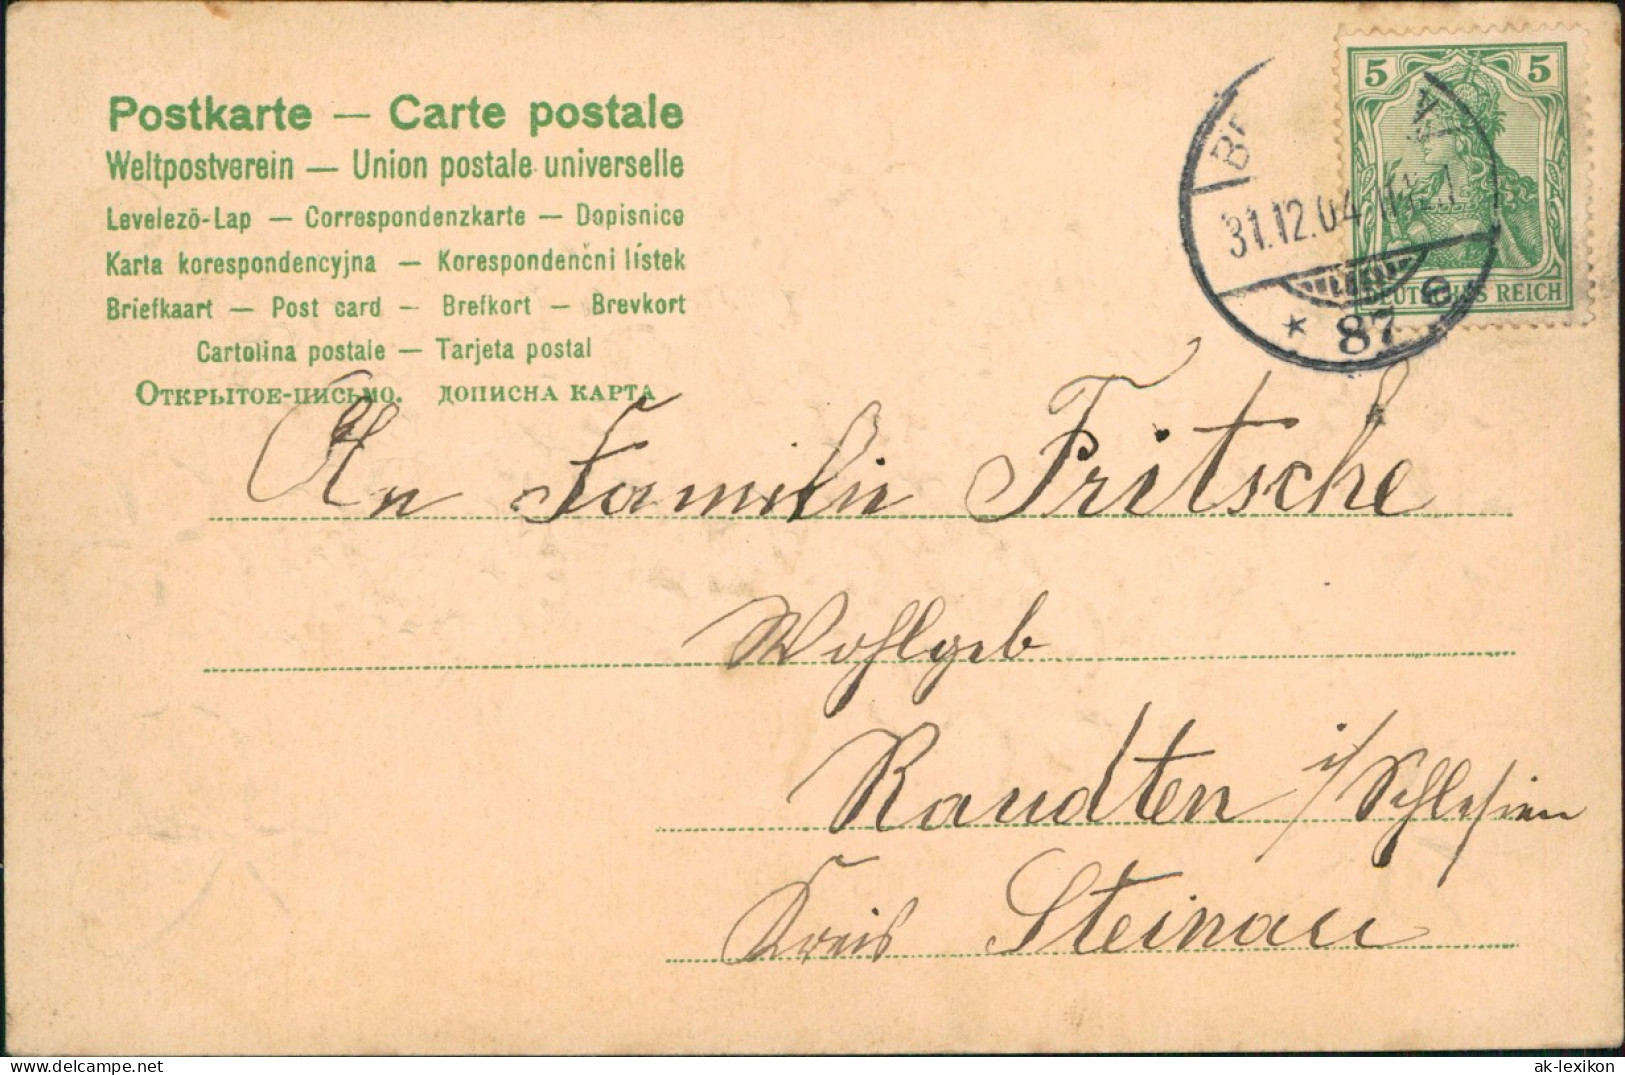 Postkarte — Carte postale
Weltpostverein — Union postale universelle
Levelezö-Lap — Correspondenzkarte — Dopisnice
Karta korespondencyjna — Korespondenčni lístek
Briefkaart — Post card — Brefkort — Brevkort
Cartolina postale — Tarjeta postal
Открытое-письмо. дописна карта
5 5
31.12.04
DEUTSCHES REICH
* 87 e
An Familie Fritsche
Wohlgeb
Raudten i/Schlesien
Kreis Steinau
delcampe.net
ak-lexikon